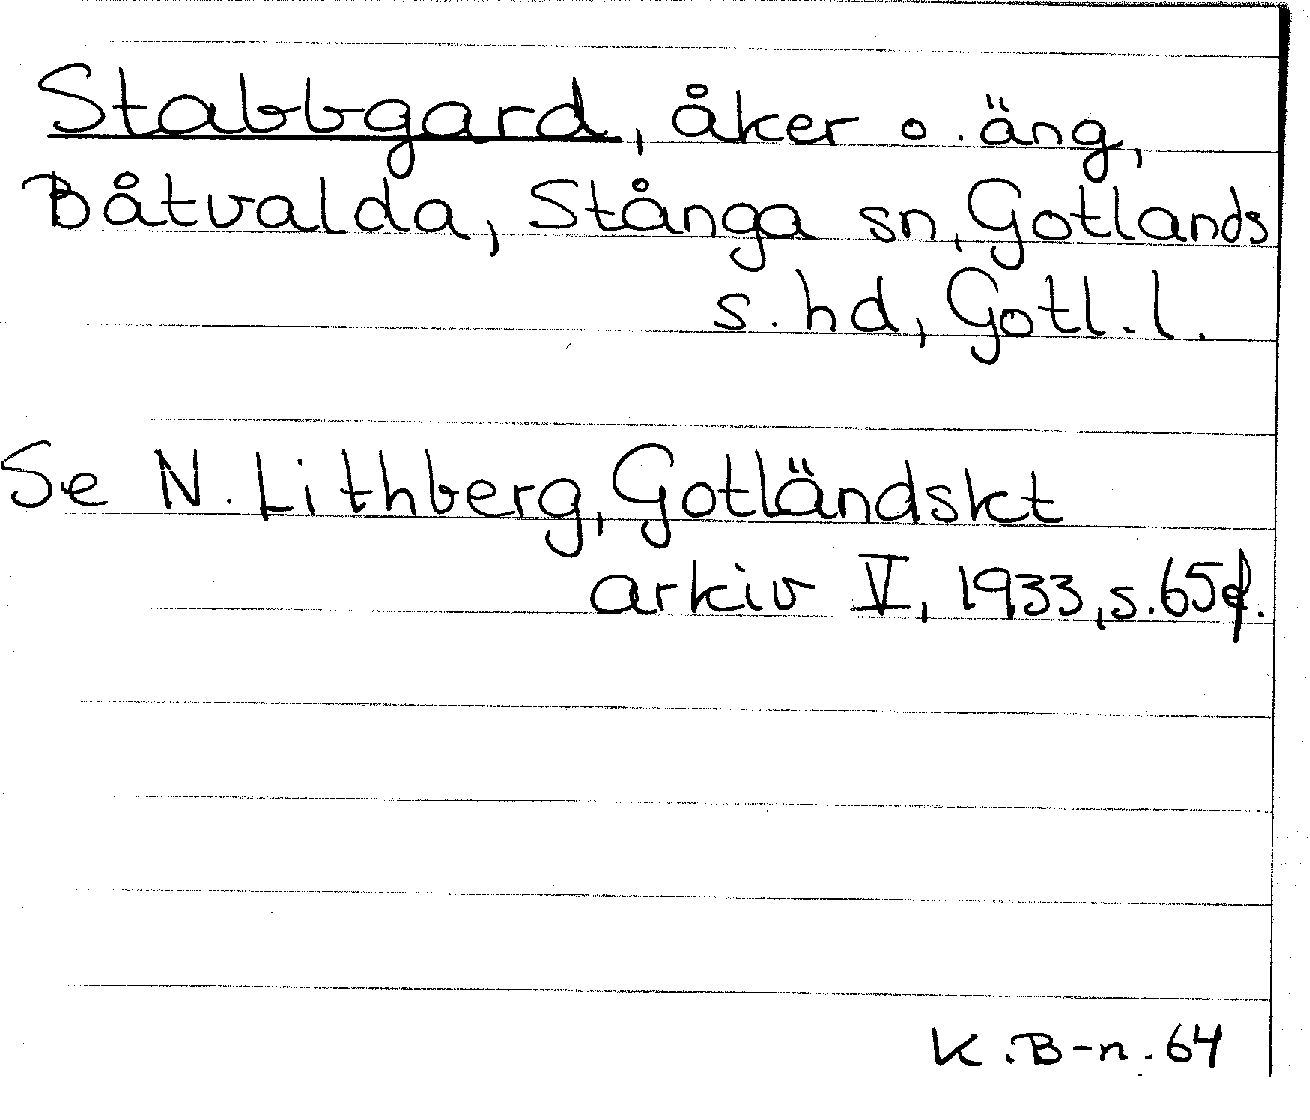 Stabbgard, åker o. äng,
Båtvalda, Stånga sn, Gotlands
s. hd, Gotl. l.
Se N. Lithberg, Gotländskt
arkiv V, 1933, s. 65f.
K. B-n. 64